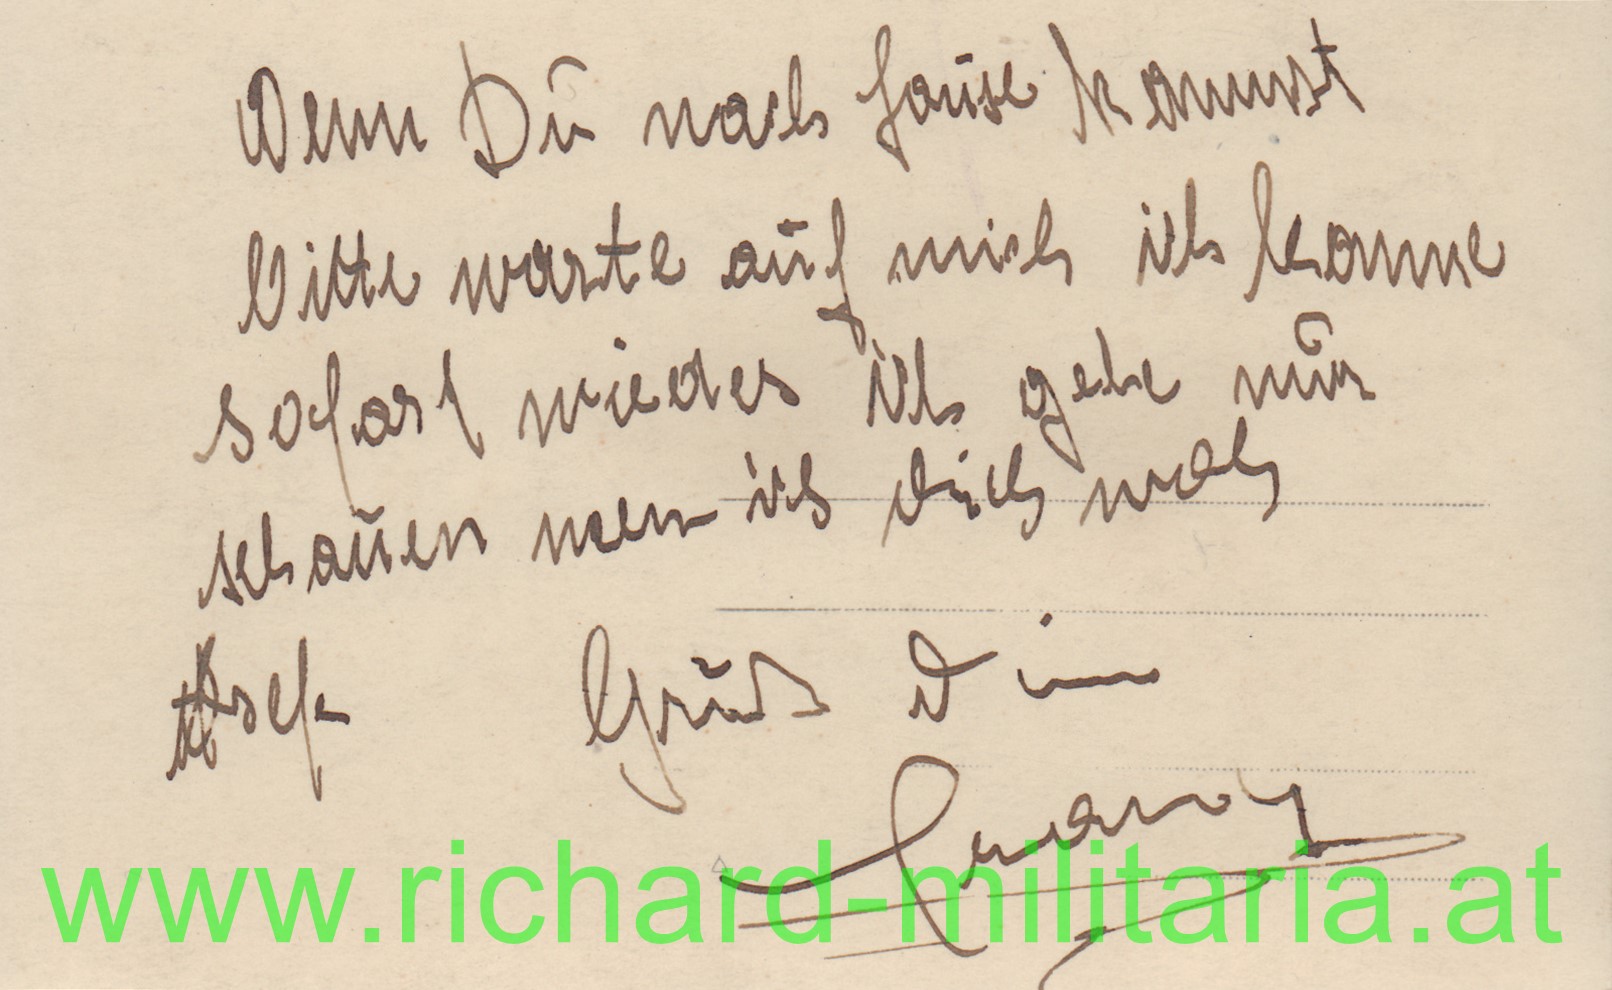 Wenn Du nach hause kommst
bitte warte auf mich ich komme
sofort wieder ich gehe nur
schauen wen ich dich noch
Gruß Dein
www.richard-militaria.at